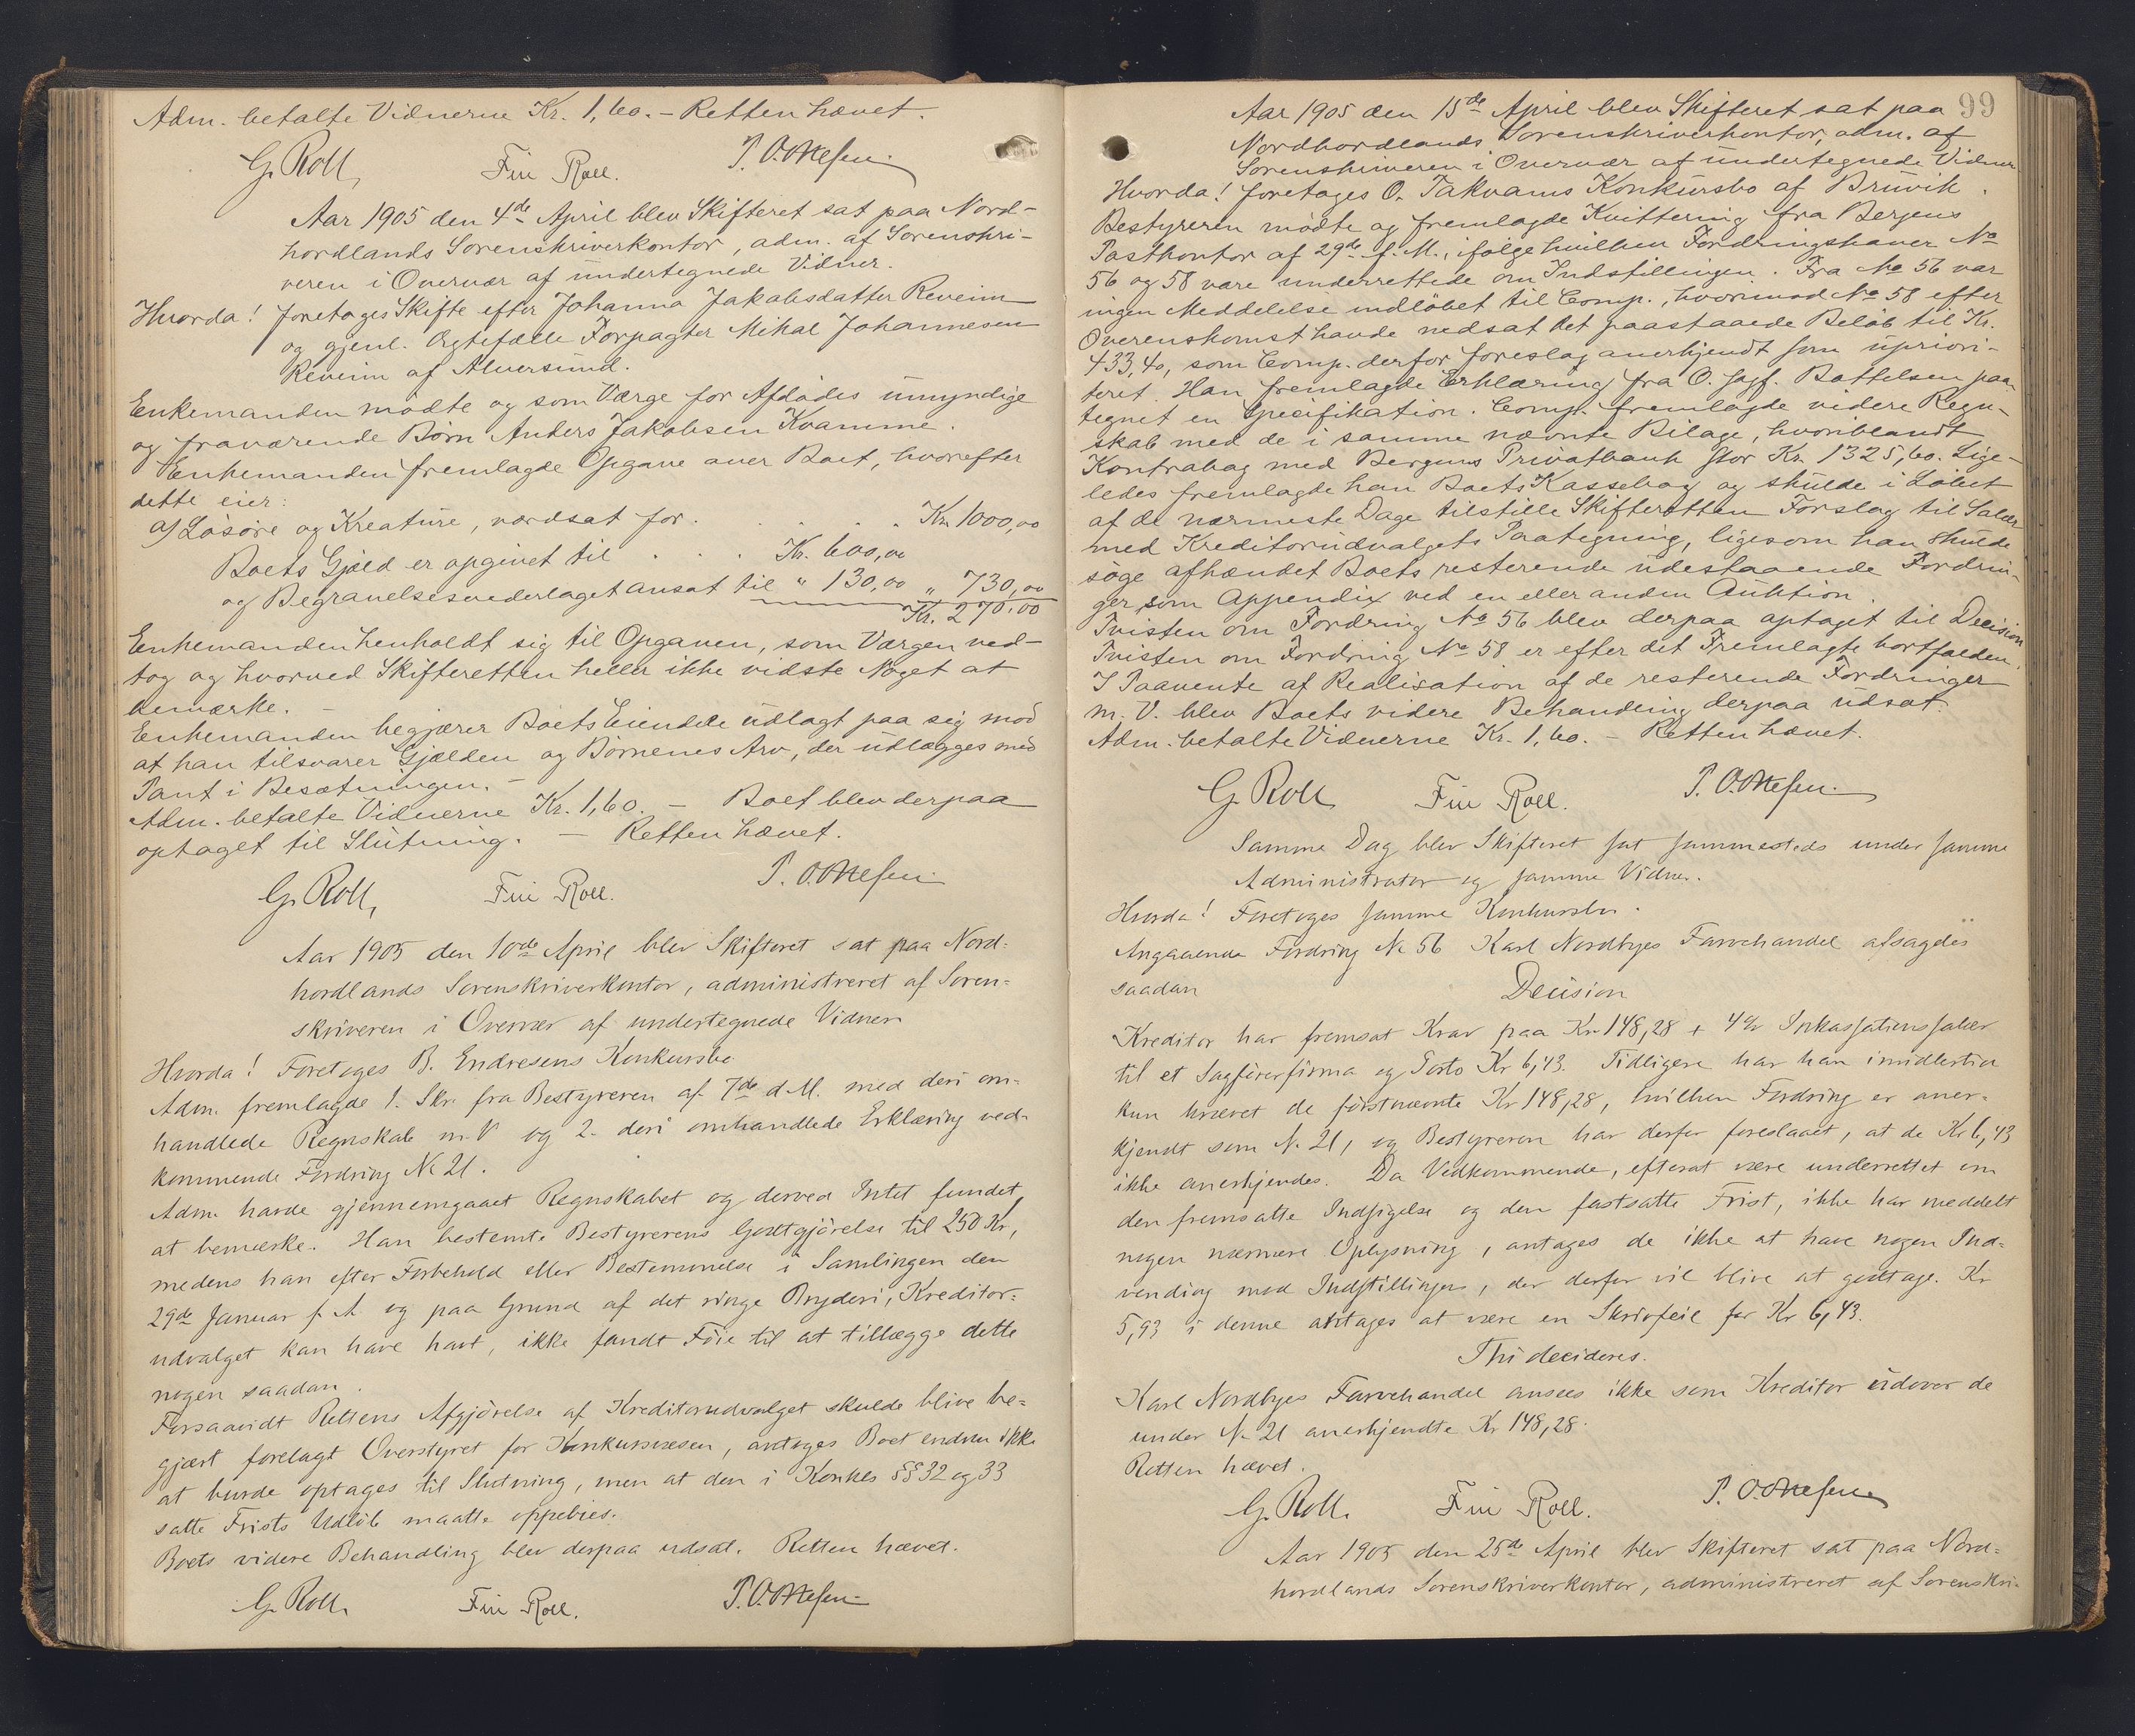 Adm. betalte Vidnerne Kr. 1,60. - Retten hævet.
G. Roll, Finn Roll. P. O. Ottesen.
Aar 1905 den 4de April blev Skifteret sat paa Nord-
hordlands Sorenskriverkontor, adm. af Sorenskri-
veren i Overvær af undertegnede Vidner.
Hvorda! foretoges Skifte efter Johanna Jakobsdatter Reveim
og gjenl. Ægtefælle Forpagter Mikal Johannesen
Reveim af Alversund.
Enkemanden mødte og som Værge for Afdødes umyndige
og fraværende Børn Anders Jakobsen Kvamme.
Enkemanden fremlagde Opgave over Boet, hvorefter
dette eier:
a) Løsøre og Kreature, værdsat for . . . . . Kr. 1000,00
Boets Gjæld er opgivet til . . . Kr. 600,00
og Begravelsesvederlaget ansat til " 130,00 " 730,00
Kr. 270,00
Enkemanden henholdt sig til Opgaven, som Værgen ved-
tog og hvorved Skifteretten heller ikke vidste Noget at
bemærke. -
Enkemanden begjærer Boets Eiendele udlagt paa sig mod
at han tilsvarer Gjælden og Børnenes Arv, der udlægges med
Pant i Besætningen. -
Adm. betalte Vidnerne Kr. 1,60. - Boet blev derpaa
optaget til Slutning. - Retten hævet.
G. Roll, Finn Roll. P. O. Ottesen.
Aar 1905 den 10de April blev Skifteret sat paa Nord=
hordlands Sorenskriverkontor, administreret af Soren=
skriveren i Overvær af undertegnede Vidner
Hvorda! Foretoges B. Endresens Konkursbo
Adm. fremlagde 1. Skr. fra Bestyreren af 7de d. M. med deri om=
handlede Regnskab m. V og 2. deri omhandlede Erklæring ved-
kommende Fordring No 21.
Adm. havde gjennemgaaet Regnskabet og derved Intet fundet
at bemærke. Han bestemte Bestyrerens Godtgjörelse til 250 Kr,
medens han efter Forbehold eller Bestemmelse i Samlingen den
29de Januar f. A. og paa Grund af det ringe Bryderi, Kreditor=
udvalget kan have havt, ikke fandt Föie til at tillægge dette
nogen saadan.
Forsaavidt Rettens Afgjörelse af Kreditorudvalget skulde blive be=
gjæret forelagt Overstyret for Konkursvæsen, antages Boet endnu ikke
at burde optages til Slutning, men at den i Konkls §§ 32 og 33
satte Frists Udløb maatte oppebies.
Boets videre Behandling blev derpaa udsat. Retten hævet.
G. Roll, Finn Roll. P. O. Ottesen.
99
Aar 1905 den 15de April blev Skifteret sat paa
Nordhordlands Sorenskriverkontor, adm. af
Sorenskriveren i Overvær af undertegnede Vidner
Hvorda! foretoges O. Takvams Konkursbo af Bruvik.
Bestyreren mødte og fremlagde Kvittering fra Bergens
Postkontor af 29de f. M., ifølge hvilken Fordringshaver No
56 og 58 vare underrettede om Indstillingen. Fra No 56 var
ingen Meddelelse indløbet til Comp., hvorimod No 58 efter
Overenskomst havde nedsat det paastaaede Beløb til Kr.
433,40, som Comp. derfor foreslog anerkjendt som upriori-
teret. Han fremlagde Erklæring fra O. Sagf. Bottelsen paa-
tegnet en Specifikation. Comp. fremlagde videre Regn-
skab med de i samme nævnte Bilage, hvoriblandt
Kontrabog med Bergens Privatbank stor Kr. 1325,60. Lige-
ledes fremlagde han Boets Kassebog og skulde i Løbet
af de nærmeste Dage tilstille Skifteretten Forslag til Salær
med Kreditorudvalgets Paategning, ligesom han skulde
søge afhændet Boets resterende udestaaende Fordrin-
ger som Appendix ved en eller anden Auktion.
Tvisten om Fordring No 56 blev derpaa optaget til Decision
Tvisten om Fordring No 58 er efter det Fremlagte bortfalden.
I Paavente af Realisation af de resterende Fordringer
m. V. blev Boets videre Behandling derpaa udsat.
Adm. betalte Vidnerne Kr. 1,60. - Retten hævet.
G. Roll Finn Roll. P. O. Ottesen.
Samme Dag blev Skifteret sat sammesteds under samme
Administrator og samme Vidner.
Hvorda! Foretoges samme Konkursbo.
Angaaende Fordring No 56 Karl Nordbyes Farvehandel afsagdes
saadan
Decision
Kreditor har fremsat Krav paa Kr 148,28 + 4% Inkassationssalær
til et Sagførerfirma og Porto Kr 6,43. Tidligere har han imidlertid
kun krævet de førstnævnte Kr 148,28, hvilken Fordring er aner=
kjendt som No 21, og Bestyreren har derfor foreslaaet, at de Kr 6,43
ikke anerkjendes. Da Vedkommende, efter at være underrettet om
den fremsatte Indsigelse og den fastsatte Frist, ikke har meddelt
nogen nærmere Oplysning, antages de ikke at have nogen Ind=
vending mod Indstillingen, der derfor vil blive at godtage. Kr
5,93 i denne antages at være en Skrivfeil for Kr 6,43.
Thi decideres.
Karl Nordbyes Farvehandel ansees ikke som Kreditor udover de
under No 21 anerkjendte Kr 148,28.
Retten hævet.
G. Roll. Finn Roll. P. O. Ottesen
Aar 1905 den 25de April blev Skifteret sat paa Nord=
hordlands Sorenskriverkontor, administreret af Sorenskri-